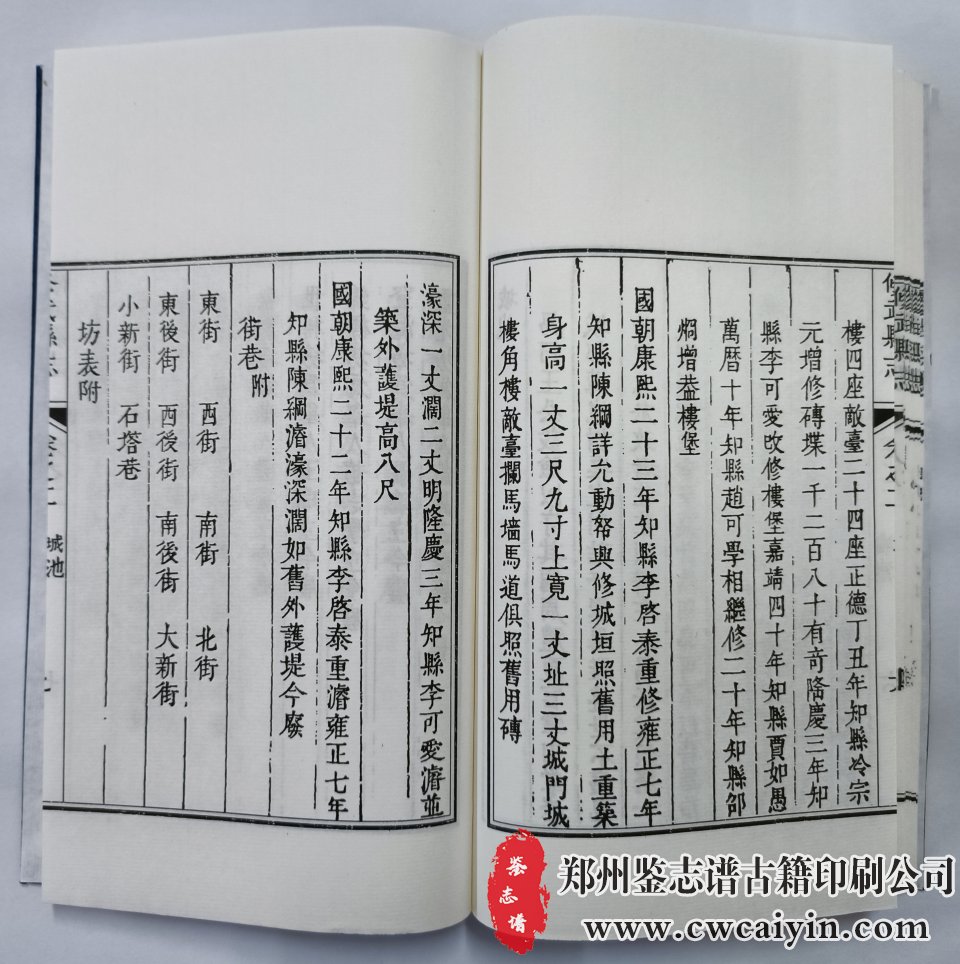 樓四座敵臺二十四座正德丁丑年知縣冷宗
元增修磚堞一千二百八十有奇隆慶三年知
縣李可愛改修樓堡嘉靖四十年知縣賈如愚
萬曆十年知縣趙可學相繼修二十年知縣邵
炯增葢樓堡
國朝康熙二十三年知縣李啓泰重修雍正七年
知縣陳綱詳允動帑興修城垣照舊用土重築
身高一丈三尺九寸上寬一丈址三丈城門城
樓角樓敵臺攔馬墙馬道俱照舊用磚
濠深一丈濶二丈明隆慶三年知縣李可愛濬並
築外護堤高八尺
國朝康熙二十二年知縣李啓泰重濬雍正七年
知縣陳綱濬濠深濶如舊外護堤今廢
街巷附
東街 西街 南街 北街
東後街 西後街 南後街 大新街
小新街 石塔巷
坊表附
城池
鉴志谱
郑州鉴志谱古籍印刷公司
www.cwcaiyin.com